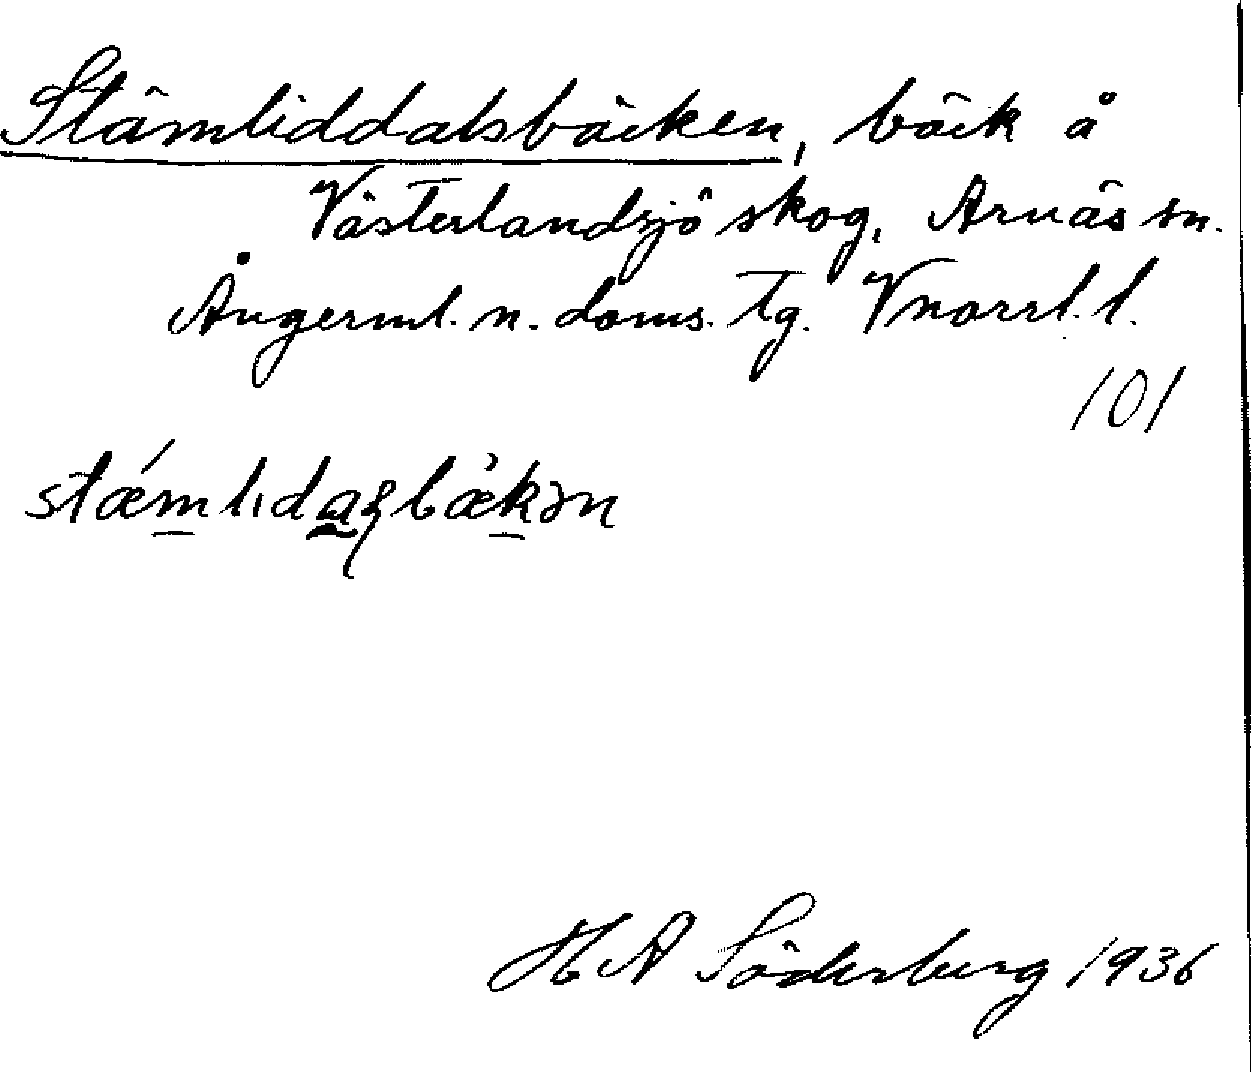 Stämliddalsbäcken, bäck å
Västerlandsjö skog, Arnäs sn.
Ångerml. n. doms. tg. Vnorrl. l.
101
stǽmlıdaʂbæ̀kən
H A Söderberg 1936